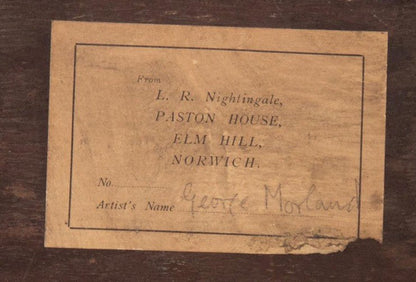 From
L. R. Nightingale,
PASTON HOUSE,
ELM HILL,
NORWICH.
No.............
Artist's Name George Morland